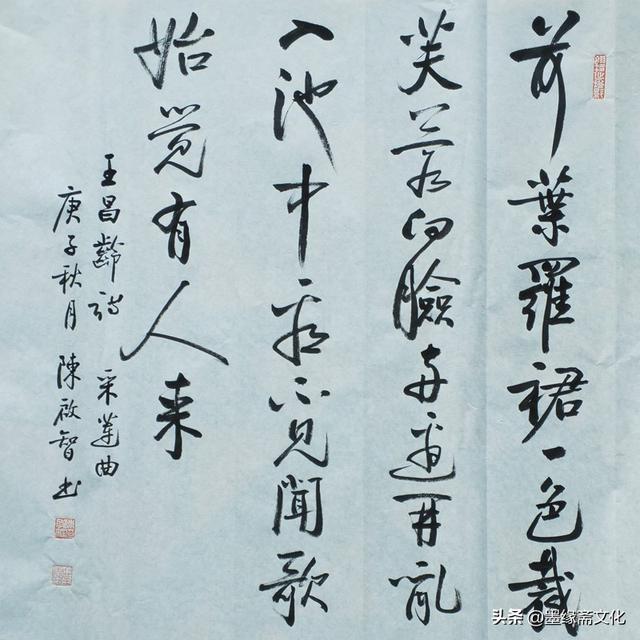 荷葉羅裙一色裁
芙蓉向臉兩邊開亂
入池中看不見聞歌
始覺有人来
王昌齡詩 采蓮曲
庚子秋月 陳啟智书
头条 @墨缘斋文化